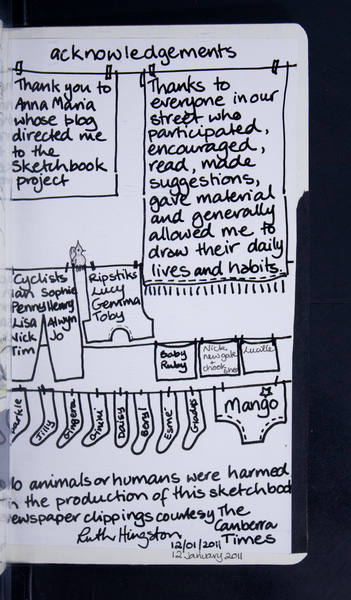 acknowledgements
Thank you to
Anna Maria
whose blog
directed me
to the
Sketchbook
project
Thanks to
everyone in our
street who
participated,
encouraged,
read, made
suggestions,
gave material
and generally
allowed me to
draw their daily
lives and habits.
Cyclists
Ian Sophie
Penny Henry
Lisa Alwyn
Nick Jo
Tim
Ripstiks
Lucy
Gemma
Toby
Baby
Ruby
Nick
newgate
Lucille
arkle
Jilly
Gingera
Chichi
Daisy
Beryl
Esmé
Gladys
Mango
No animals or humans were harmed
in the production of this sketchbook
newspaper clippings courtesy The
Canberra
Times
Ruth Hingston
12/01/2011
12 January 2011